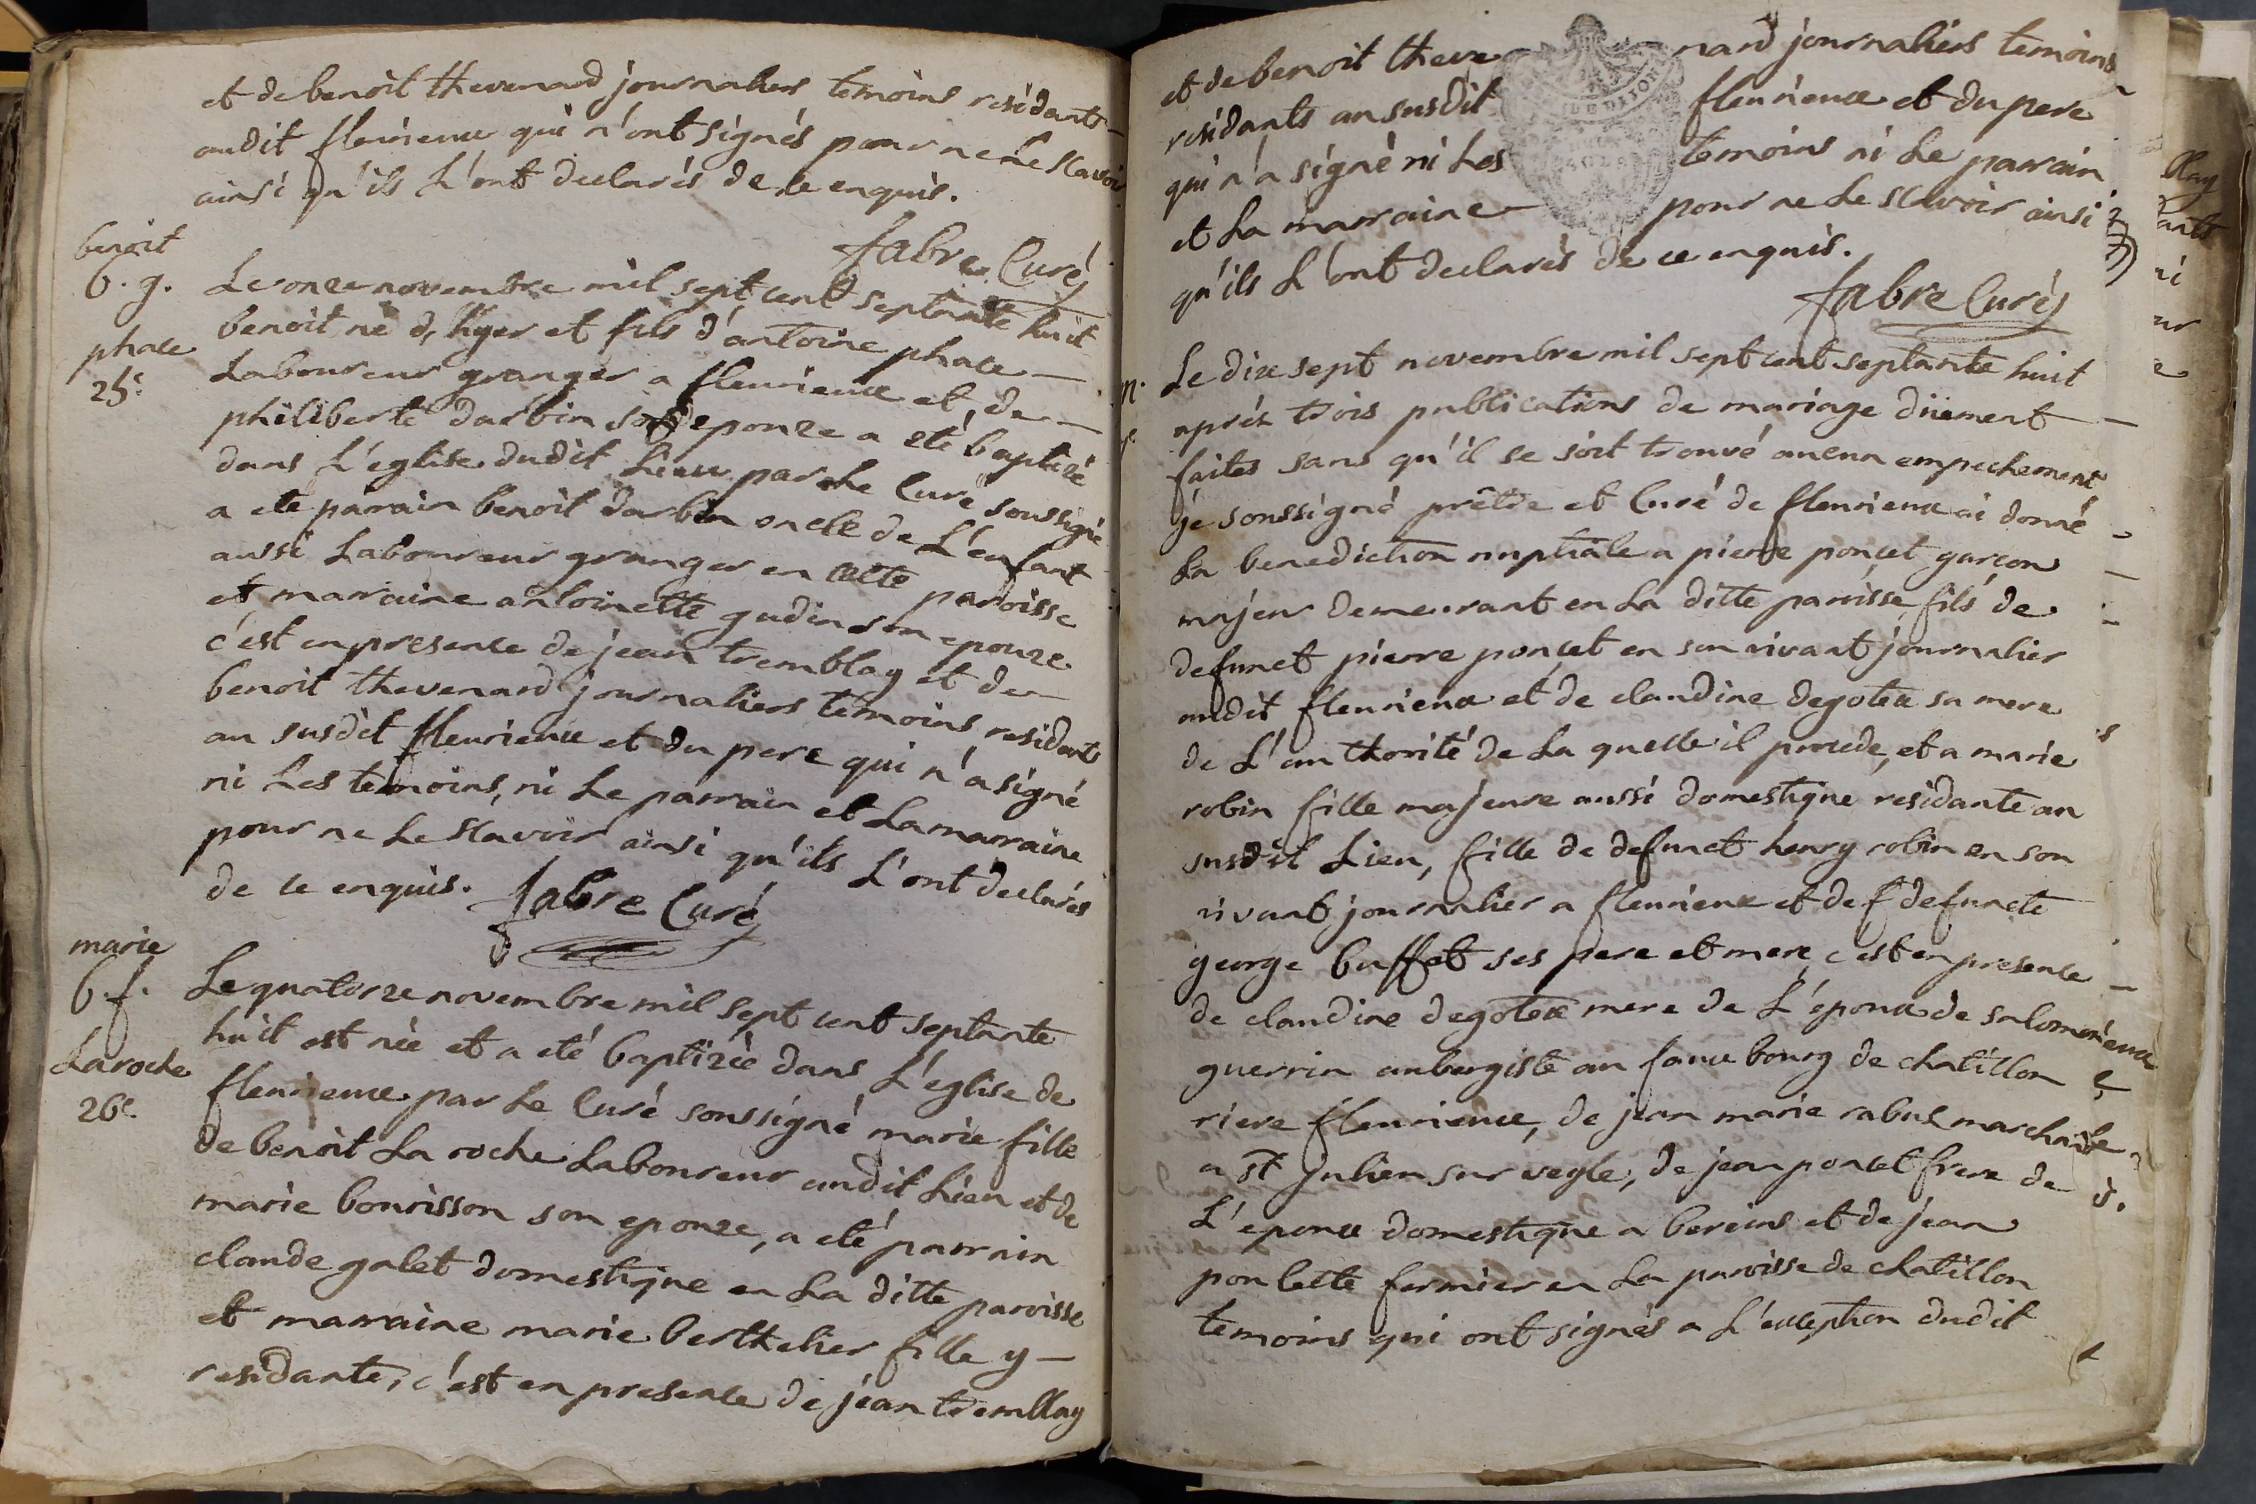 et de benoit thevenard journaliers temoins residants
audit fleurieux qui n'ont signés pour ne le scavoir
ainsi qu'ils L'ont declarés de ce enquis.
fabre Curé
benoit
b. g.
phace
25e
Le onze novembre mil sept cent septante huit
benoit né d'hyer et fils d'antoine phace
Laboureur granger a fleurieux et de
philiberte darbin son eponze a eté baptizé
dans L'eglise dudit Lieu par le Curé soussigné
a ete parain benoit darbin oncle de L'enfant
aussi Laboureur granger en cette paroisse
et marraine antoinette gudin son eponze
c'est en presence de jean tremblay et de
benoit thevenard journaliers temoins residants
au susdit fleurieux et du pere qui n'a signé
ni Les temoins, ni Le parrain et La marraine
pour ne Le scavoir ainsi qu'ils L'ont declarés
de ce enquis. fabre Curé
marie
b. f.
Laroche
26e
Le quatorze novembre mil sept cent septante
huit est née et a eté baptizée dans L'eglise de
fleurieux par Le Curé soussigné marie fille
de benoit La roche Laboureur audit Lieu et de
marie bourisson son eponze, a eté parrain
claude galet domestique en La ditte paroisse
et marraine marie berthelier fille y
residante, c'est en presence de jean tremblay
et de benoit thevenard journaliers temoins
residants au susdit fleurieux et du pere
qui n'a signé ni Les temoins ni Le parrain
et La marraine pour ne Le scavoir ainsi
qu'ils L'ont declarés de ce enquis.
fabre Curé
Le dix sept novembre mil sept cent septante huit
aprés trois publications de mariage düement
faites sans qu'il se soit trouvé aucun empechement
je soussigné prêtre et Curé de fleurieux ai donné
La benediction nuptiale a pierre poncet garcon
majeur demeurant en La ditte paroisse, fils de
defunct pierre poncet en son vivant journalier
audit fleurieux et de claudine degotex sa mere
de L'authorité de La quelle il procede, et a marie
robin fille majeure aussi domestique residante au
susdit Lieu, fille de defunct henry robin en son
vivant journalier a fleurieux et de defuncte
george buffet ses pere et mere, c'est en presence
de claudine degotex mere de L'epoux de
guerrin aubergiste au faux bourg de chatillon
riere fleurieux, de jean marie rabus marchand
a st julien sur vegle, de jean poncet frere de
L'epoux domestique a bereins et de jean
ponlette fermier en La paroisse de chatillon
temoins qui ont signés a L'exception dudit